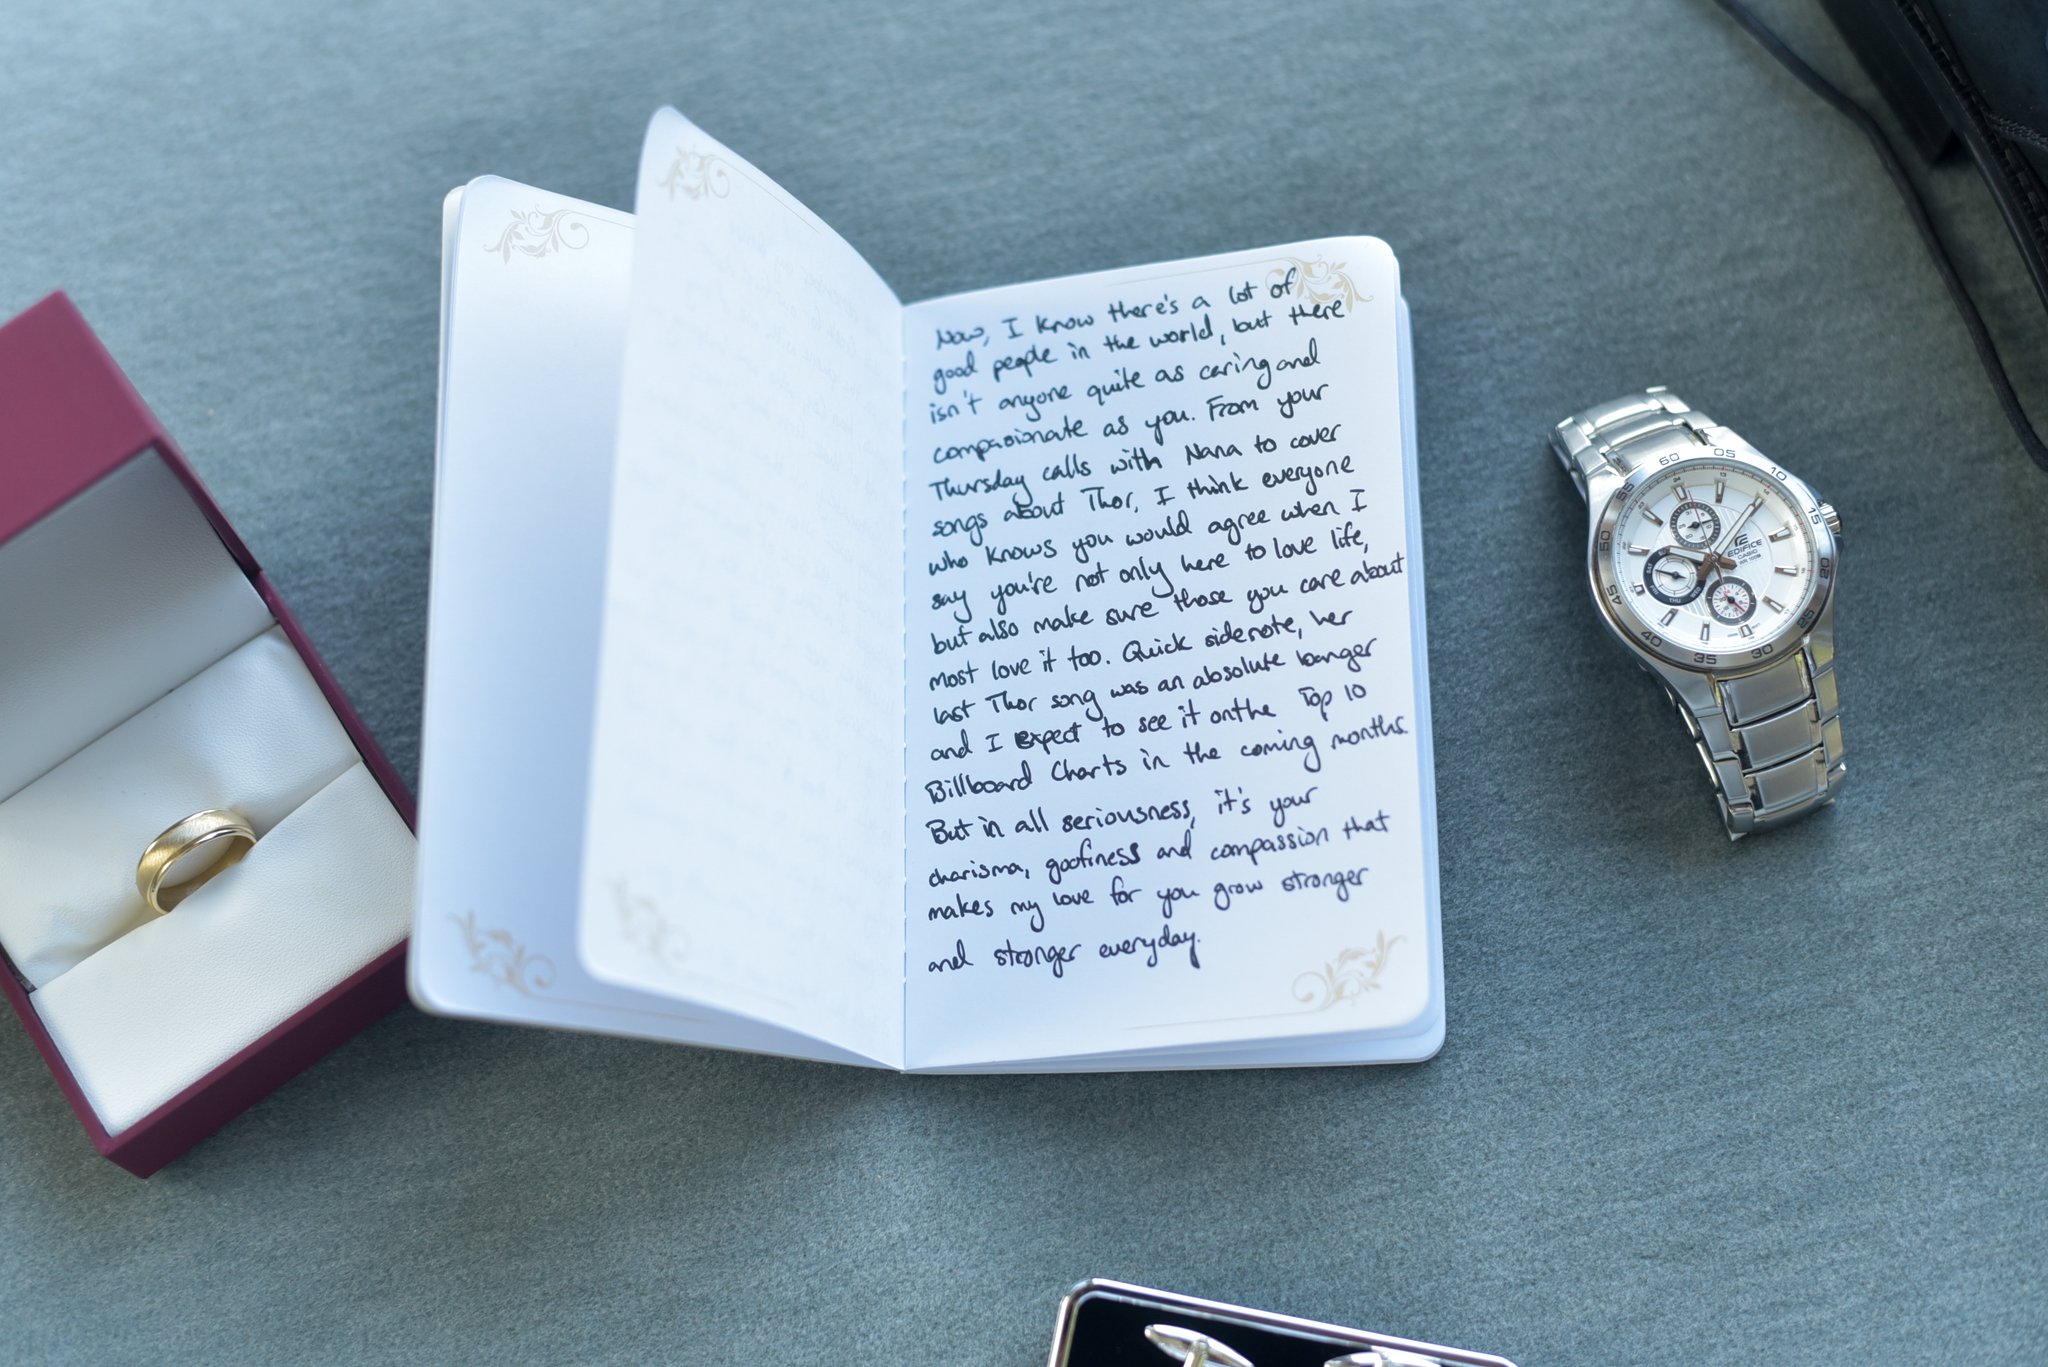 Now, I know there's a lot of
good people in the world, but there
isn't anyone quite as caring and
compasionate as you. From your
Thursday calls with Nana to cover
songs about Thor, I think everyone
who knows you would agree when I
say you're not only here to love life,
but also make sure those you care about
most love it too. Quick sidenote, her
last Thor song was an absolute banger
and I expect to see it on the Top 10
Billboard Charts in the coming months.
But in all seriousness, it's your
charisma, goofiness and compassion that
makes my love for you grow stronger
and stronger everyday.
60
05
10
15
20
25
30
35
40
45
50
55
EDIFICE
CASIO
WR 100M
THU